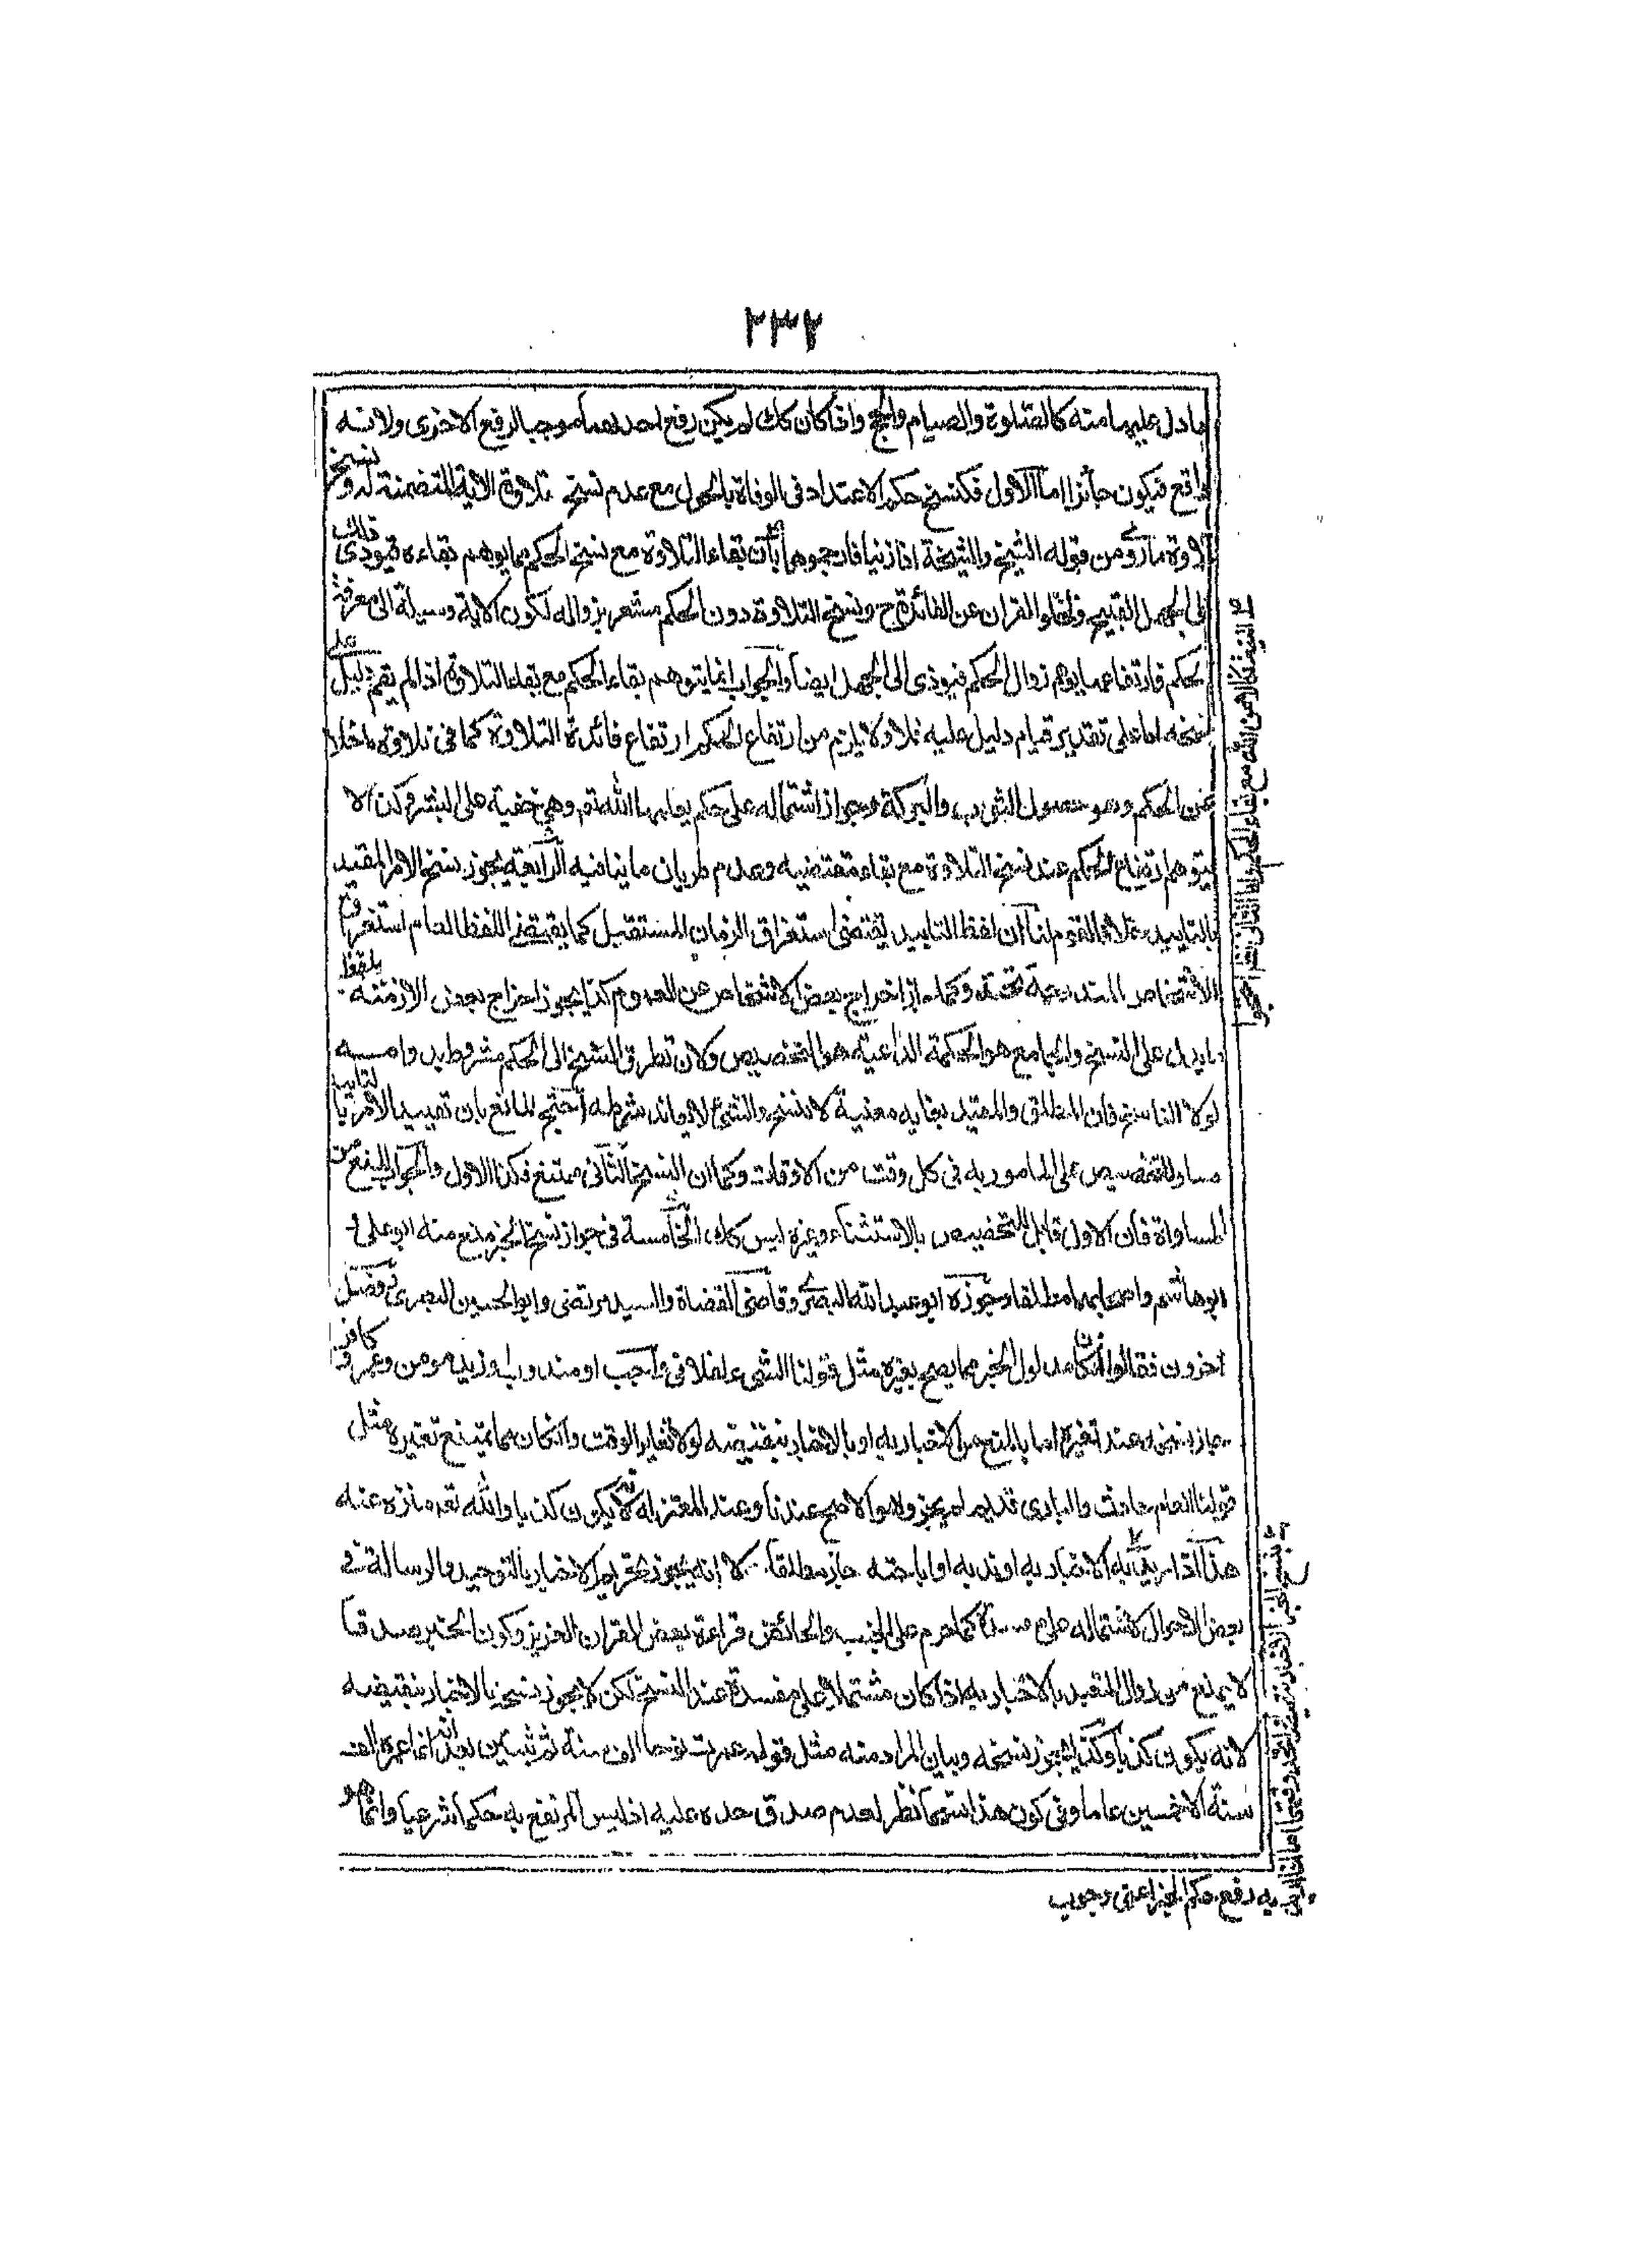 ٢٣٢
ما دل عليهما منه كالصلوة والصيام والحج واذا كان كك لم يكن رفع احديهما موجبا لرفع الاخرى ولانه
واقع فيكون جائزا اما الاول فكنسخ حكم الاعتداد فى الوفاة بالحول مع عدم نسخ تلاوة الاية المتضمنة له ونسخ
تلاوة ما روى من قوله الشيخ والشيخة اذا زنيا فارجموهما بان بقاء التلاوة مع نسخ الحكم مما يوهم بقاءه فيؤدى ذلك
الى الجهل القبيح ولخلو القران عن الفائدة ح ونسخ التلاوة دون الحكم مشعر بزواله لكون الاية وسيلة الى معرفة
الحكم فارتفاعها يوهم زوال الحكم فيؤدى الى الجهل ايضا والجواب انما يتوهم بقاء الحكم مع بقاء التلاوة اذا لم يقم دليل على
نسخه اما على تقدير قيام دليل عليه فلا ولا يلزم من ارتفاع الحكم ارتفاع فائدة التلاوة كما فى تلاوة ما خلا
عن الحكم وهو حصول الثواب والبركة وجواز اشتماله على حكم يعلمها الله تع وهى خفية على البشر وكذا لا
يتوهم ارتفاع الحكم عند نسخ التلاوة مع بقاء مقتضيه وعدم طريان ما ينافيه الرابعة يجوز نسخ الامر المقيد
بالتابيد خلافا لقوم لنا ان لفظ التابيد يقتضى استغراق الزمان المستقبل كما يقتضى اللفظ العام استغراق
الاشخاص المندرجة تحته وكما جاز اخراج بعض الاشخاص عن العموم كذا يجوز اخراج بعض الازمنة بلفظ
ما يدل على النسخ والجامع هو الحكمة الداعية هو التخصيص ولان تطرق النسخ الى الحكم مشروط بدوامه
لولا الناسخ فان المطلق والمقيد بغاية معنية لا ينسخ والشىء لا يعاند شرطه احتج المانع بان تقييد الامر بالتابيد
مساو للتخصيص على المامور به فى كل وقت من الاوقات وكما ان النسخ الثانى ممتنع فكذا الاول والجواب المنع من
المساواة فان الاول قابل للتخصيص بالاستثناء وغيره ليس كك الخامسة فى جواز نسخ الخبر منع منه ابو على و
ابو هاشم واصحابهما مطلقا وجوزه ابو عبد الله البصرى وقاضى القضاة والسيد مرتضى وابو الحسين البصرى وفصل
اخرون فقالوا ان كان مدلول الخبر مما يصح تغيره مثل قولنا الشىء الفلانى واجب او مندوب او زيد مومن وعمرو كافر
جاز نسخه عند تغيره اما بالمنع من الاخبار به او بالاخبار بنقيضه لولا تغاير الوقت وان كان مما يمتنع تغيره مثل
قولنا العالم حادث والبارى قديم لم يجز ولا هو الاصح عندنا وعند المعتزلة لئلا يكون كذبا والله تع منزه عنه
هذا اذا اريد به الاخبار به او ندبه او اباحته جاز مطلقا الا انه يجوز تحريم الاخبار بالتوحيد والرسالة فى
بعض الاحوال لاشتماله على مفسدة كما حرم على الجنب والحائض قراءة بعض القران العزيز وكون الخبر صدقا
لا يمنع من زوال التعبد بالاخبار به اذا كان مشتملا على مفسدة عند النسخ لكن لا يجوز نسخه بالاخبار بنقيضه
لانه يكون كذبا وكذا يجوز نسخه وبيان المراد منه مثل قوله عمرت نوحا الف سنة ثم تبين بعد انه انما عمره الف
سنة الا خمسين عاما وفى كون هذا نسخا نظر لعدم صدق حده عليه اذ ليس المرتفع به حكما شرعيا وانما هو
به رفع حكم الخبر اعنى وجوب